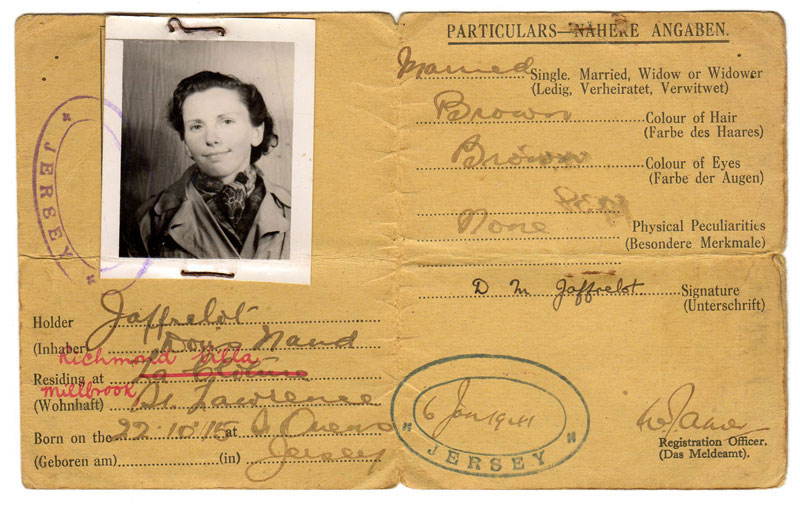 JERSEY
Holder Jaffrelot
(Inhaber) Maud
Richmond Villa
Residing at
Millbrook
(Wohnhaft) St. Lawrence
Born on the 22·10·15 at St Ouens
(Geboren am) (in) Jersey
PARTICULARS—NÄHERE ANGABEN.
Married Single. Married, Widow or Widower
(Ledig, Verheiratet, Verwitwet)
Brown Colour of Hair
(Farbe des Haares)
Brown Colour of Eyes
(Farbe der Augen)
None Physical Peculiarities
(Besondere Merkmale)
D M Jaffrelot Signature
(Unterschrift)
6 Jan 1941
JERSEY
Registration Officer.
(Das Meldeamt).